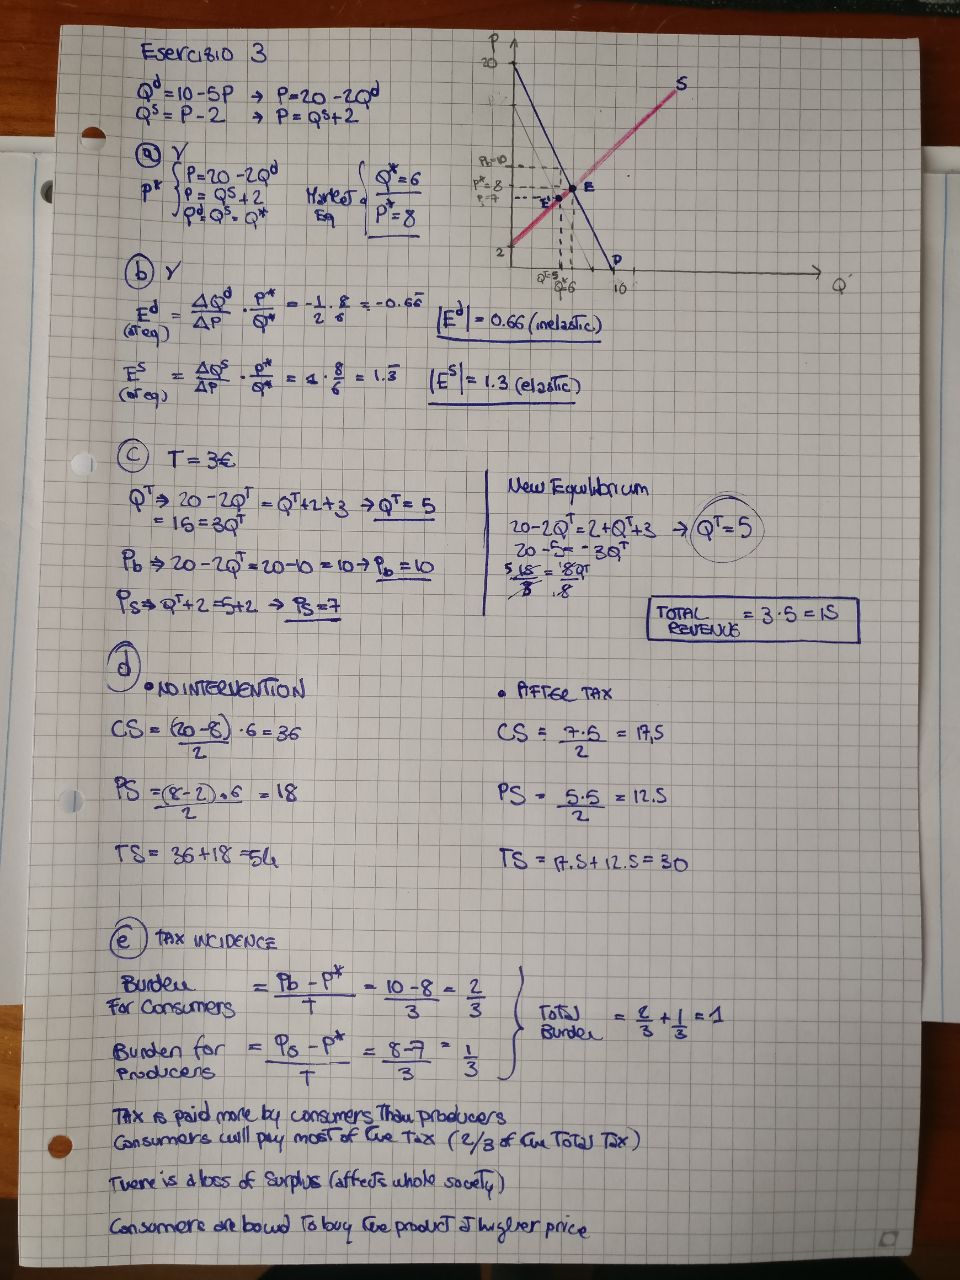 Esercizio 3
Q^d = 10 - 5P → P = 20 - 2Q^d
Q^s = P - 2 → P = Q^s + 2
P
20
S
Pb=10
P*=8
Ps=7
E
E'
2
D
Q^T=5
Q*=6
10
Q
(a)
P*
P = 20 - 2Q^d
P = Q^s + 2
Q^d = Q^s = Q*
Market Eq
Q* = 6
P* = 8
(b)
E^d (at eq) = ΔQ^d/ΔP · P*/Q* = -1/2 · 8/6 = -0.66
|E^d| = 0.66 (inelastic)
E^s (at eq) = ΔQ^s/ΔP · P*/Q* = 1 · 8/6 = 1.3
|E^s| = 1.3 (elastic)
(c) T = 3€
Q^T → 20 - 2Q^T = Q^T + 2 + 3 → Q^T = 5
= 15 = 3Q^T
Pb → 20 - 2Q^T = 20 - 10 = 10 → Pb = 10
Ps → Q^T + 2 = 5 + 2 → Ps = 7
New Equilibrium
20 - 2Q^T = 2 + Q^T + 3 → Q^T = 5
20 - 5 = 3Q^T
TOTAL REVENUE = 3 · 5 = 15
(d)
• NO INTERVENTION
CS = (20-8)/2 · 6 = 36
PS = (8-2) · 6/2 = 18
TS = 36 + 18 = 54
• AFTER TAX
CS = 7·5/2 = 17,5
PS = 5·5/2 = 12.5
TS = 17.5 + 12.5 = 30
(e) TAX INCIDENCE
Burden For Consumers = Pb - P*/T = 10 - 8/3 = 2/3
Burden for Producers = Ps - P*/T = 8-7/3 = 1/3
Total Burden = 2/3 + 1/3 = 1
Tax is paid more by consumers than producers
Consumers will pay most of the Tax (2/3 of the Total Tax)
There is a loss of surplus (affects whole society)
Consumers are bound to buy the product at higher price